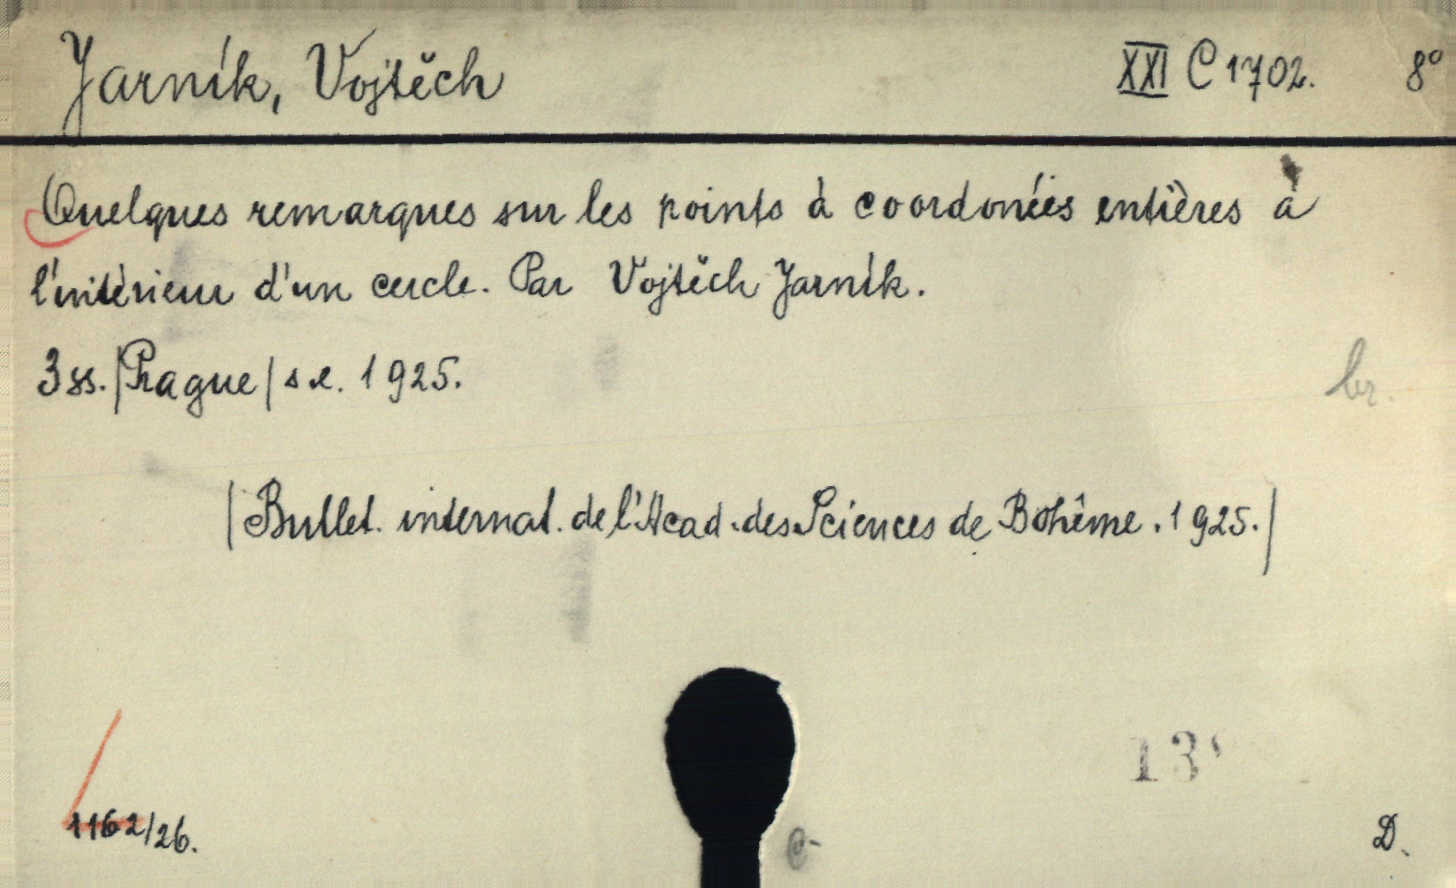 Jarník, Vojtěch XXI C 1702. 8°
Quelques remarques sur les points à coordonées entières à
l'intérieur d'un cercle. Par Vojtěch Jarník.
3 ss. |Prague| s.e. 1925.
br.
|Bullet. internat. de l'Acad. des Sciences de Bohême. 1925.|
13
1162/26.
D.